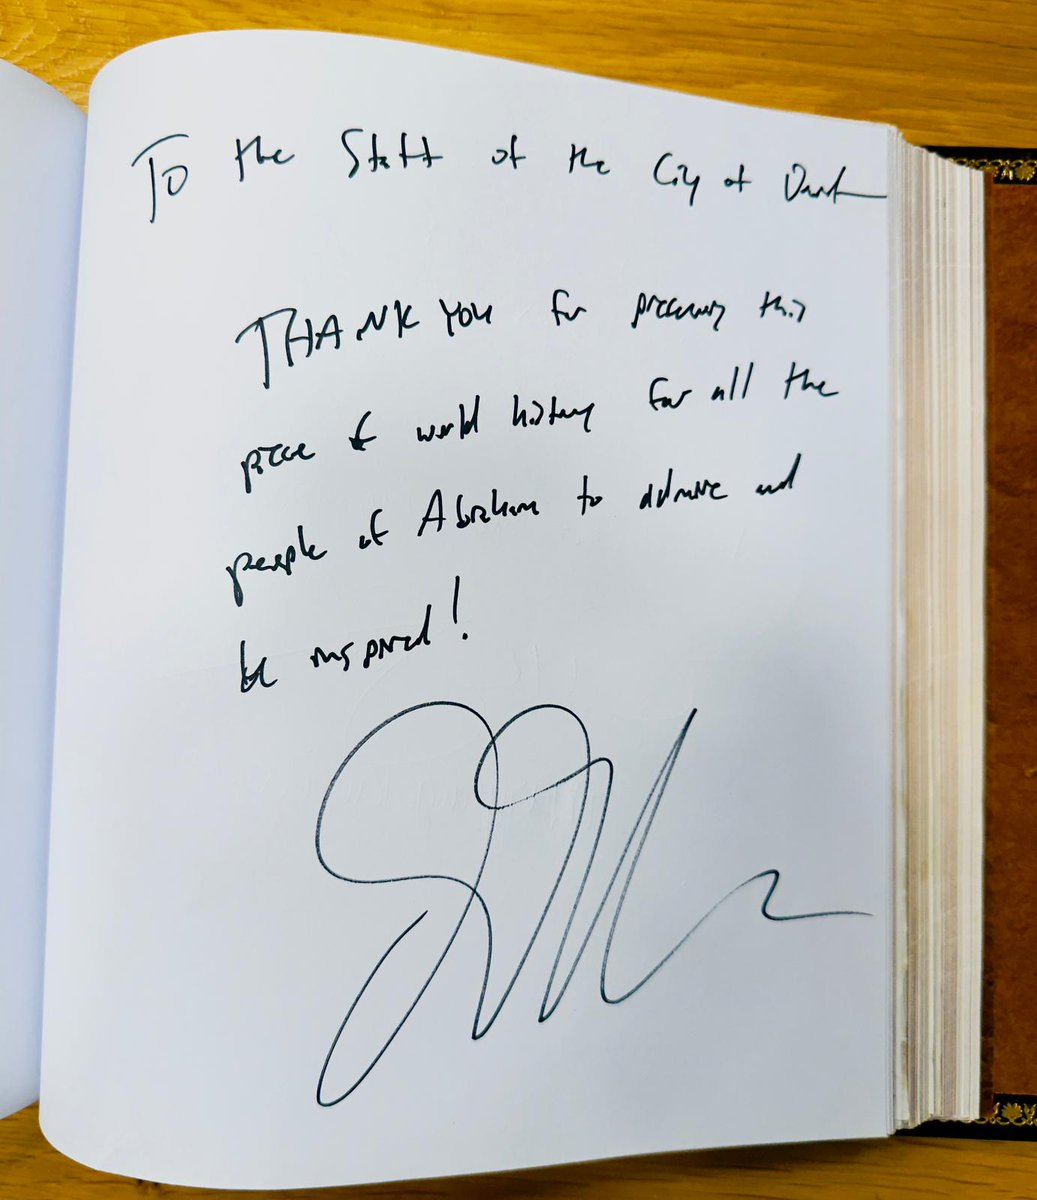 To the Staff of the City of
THANK YOU for preserving this
piece of world history for all the
people of Abraham to admire and
be inspired!